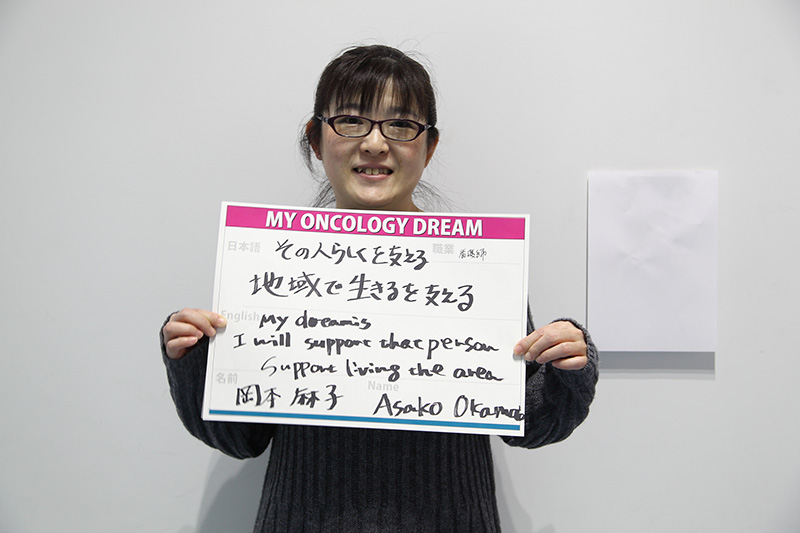 MY ONCOLOGY DREAM
日本語 その人らしくを支える 職業 看護師
地域で生きるを支える
English My dream is
I will support that person
Support living the area
名前 Name
岡本 麻子 Asako Okamoto